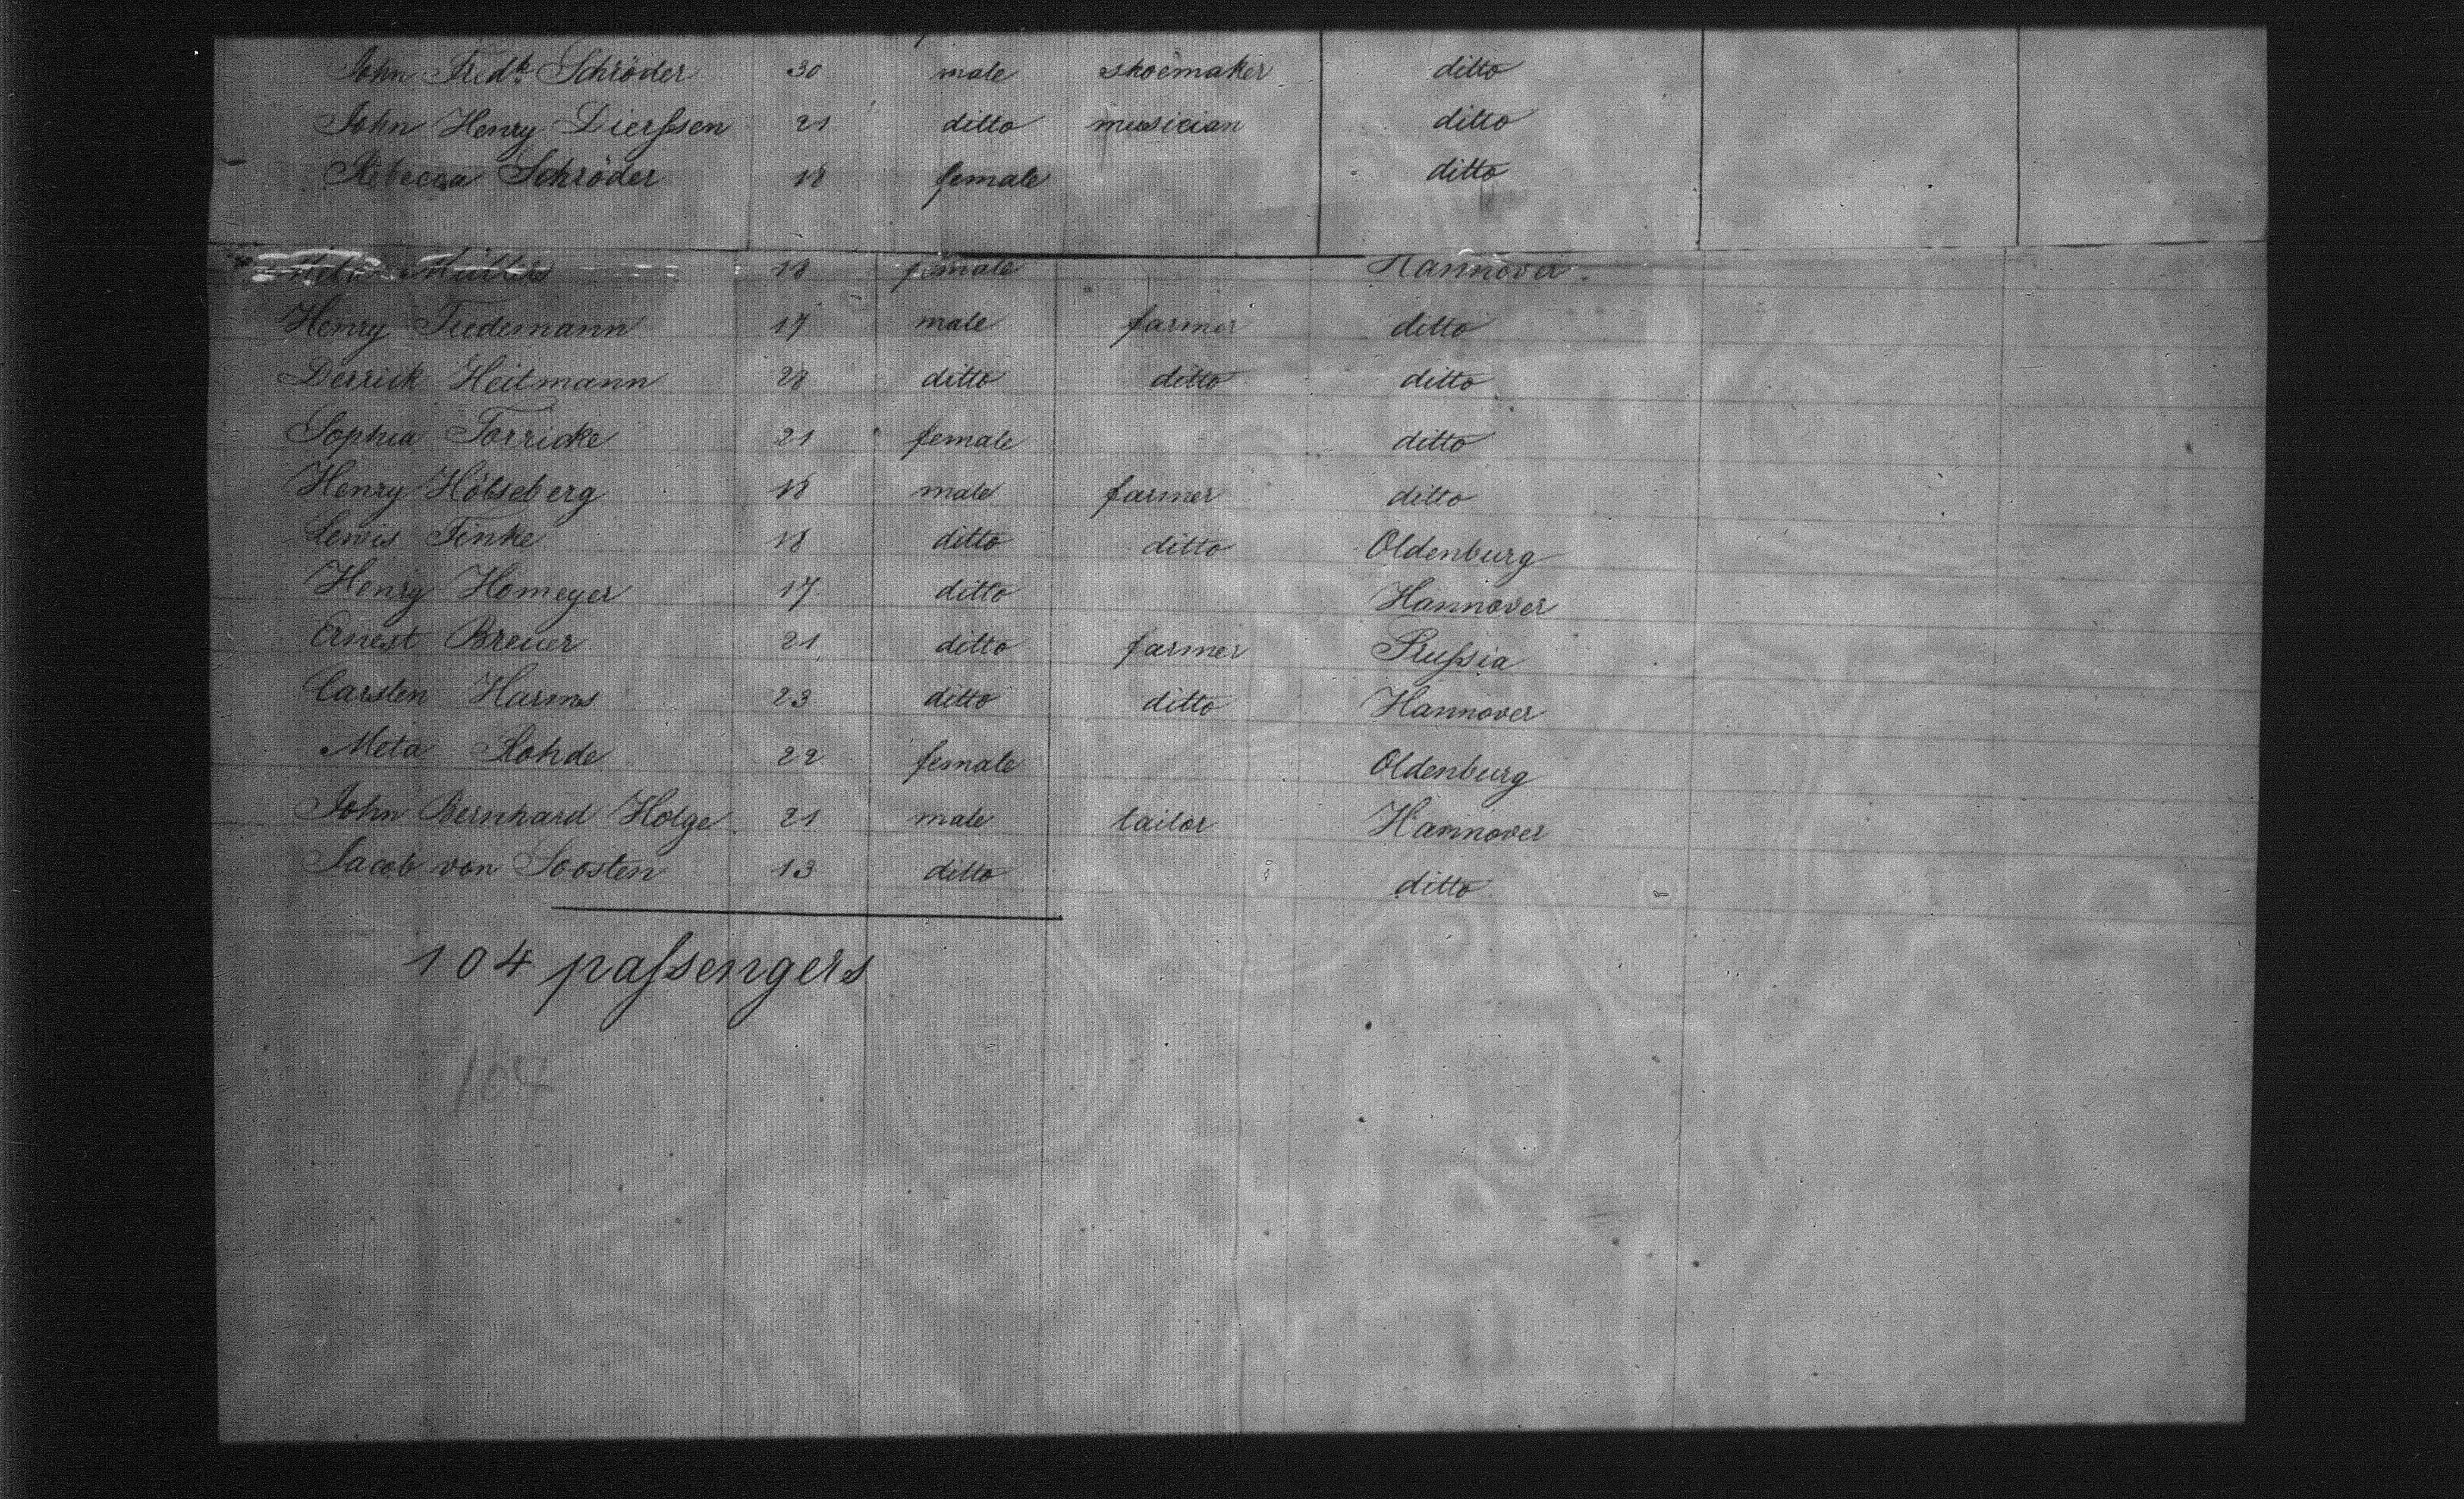 John Fredk. Schröder 30 male shoemaker ditto
John Henry Dierssen 21 ditto musician ditto
Rebecca Schröder 18 female ditto
Müller 18 female Hannover
Henry Tiedemann 17 male farmer ditto
Derrick Heitmann 28 ditto ditto ditto
Sophia Torricke 21 female ditto
Henry 18 male farmer ditto
Lewis Finke 18 ditto ditto Oldenburg
Henry Homeyer 17 ditto Hannover
Ernest Breuer 21 ditto farmer Prussia
Carsten Harms 23 ditto ditto Hannover
Meta Rohde 22 female Oldenburg
John Bernhard Holge 21 male tailor Hannover
Jacob von Soosten 13 ditto ditto
104 passengers
104